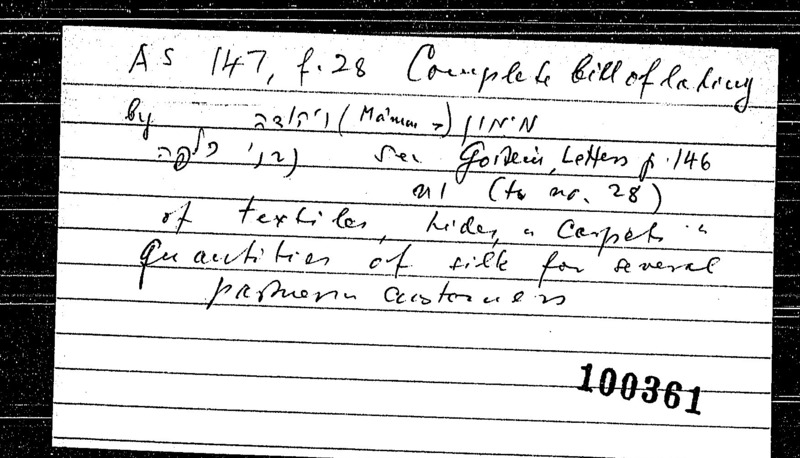 AS 147, f. 28 Complete bill of lading
by מימון (Ma'mun →) ויהודה
בני' כלפה) see Goitein, Letters p. 146
n1 (to no. 28)
of textiles, hides, a carpet "
quantities of silk for several
partners customers
100361